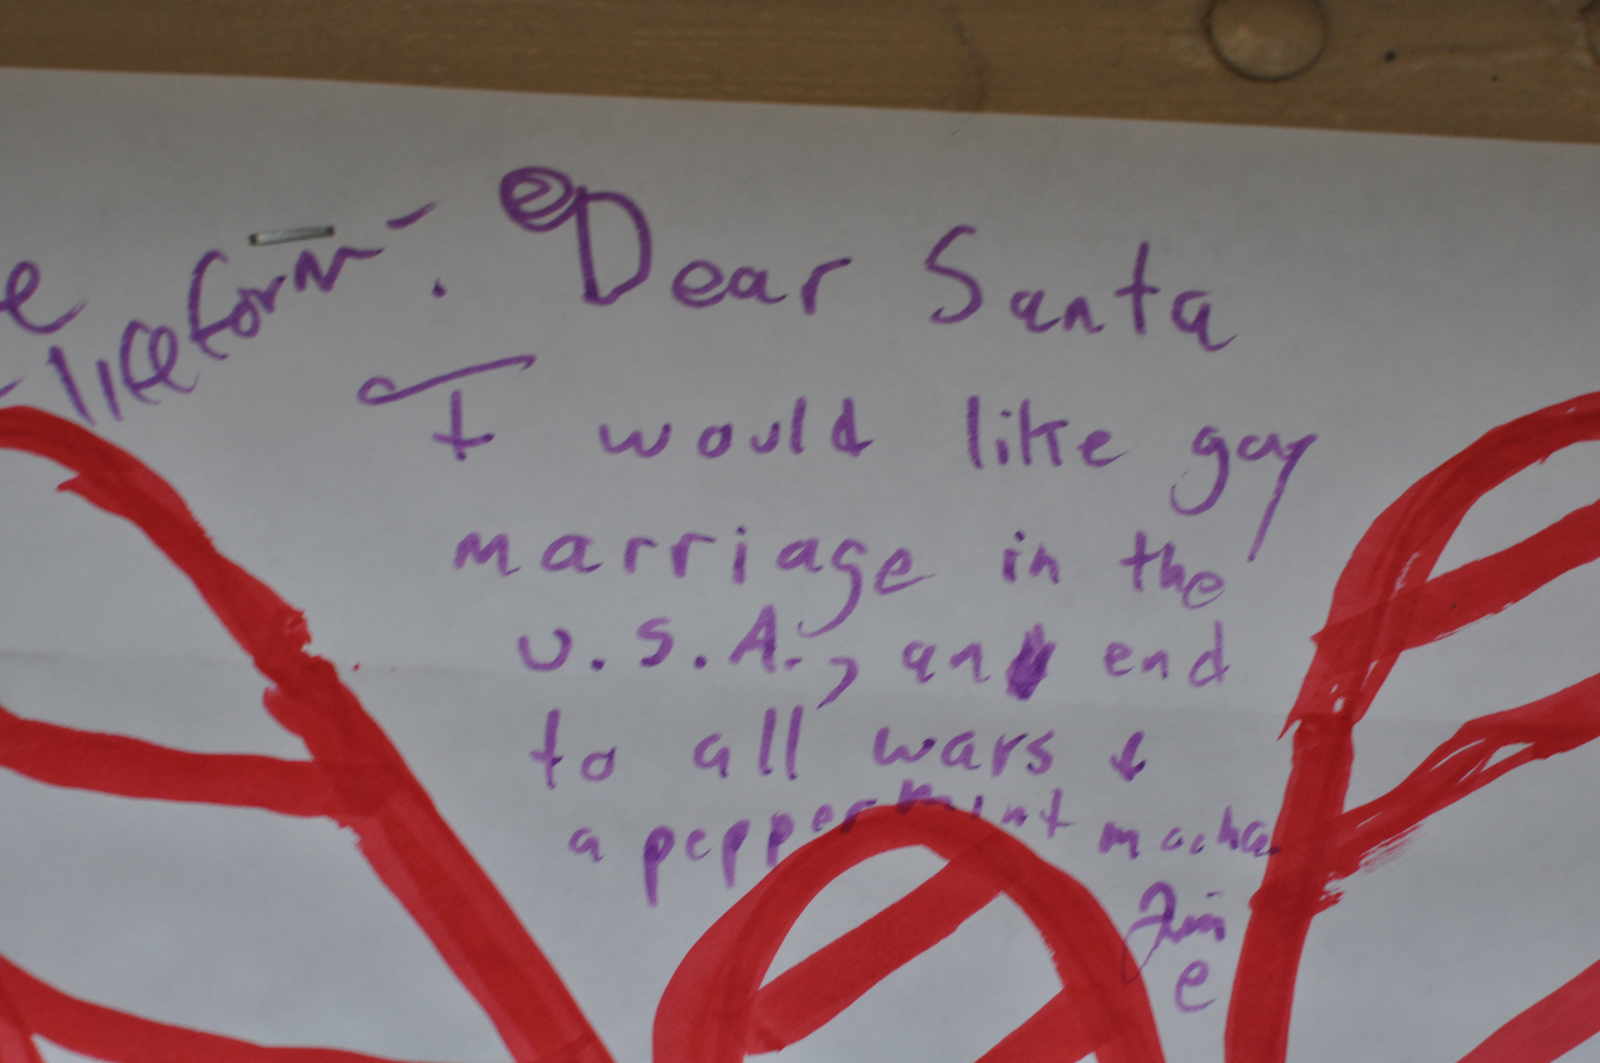 e
lifeform
Dear Santa
I would like gay
marriage in the
U.S.A., an end
to all wars &
a peppermint mocha